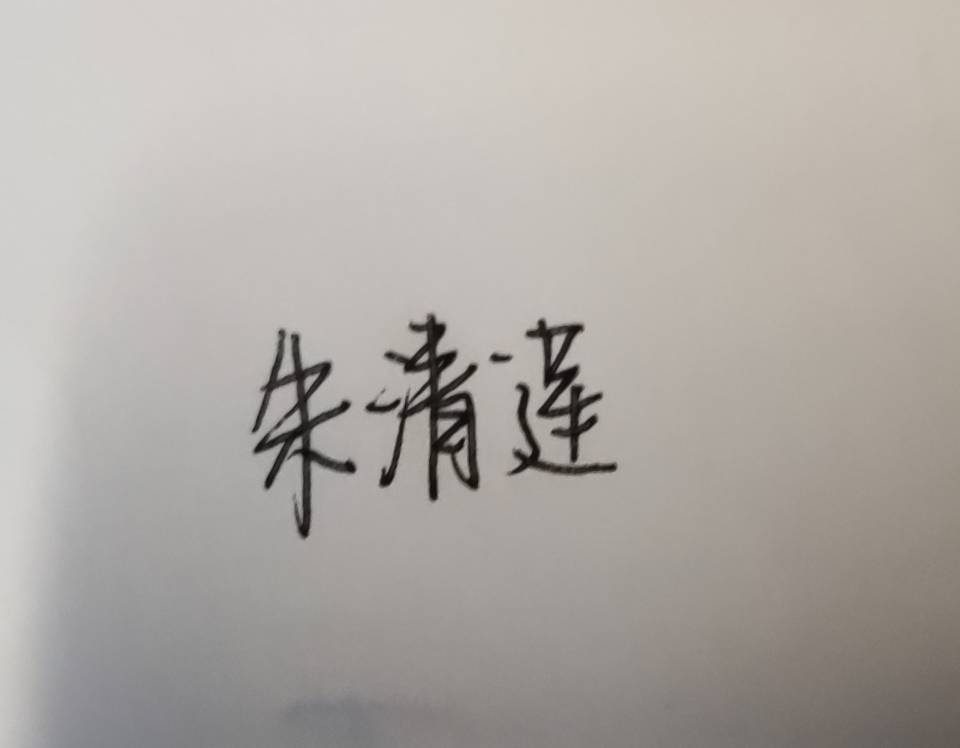 朱清莲